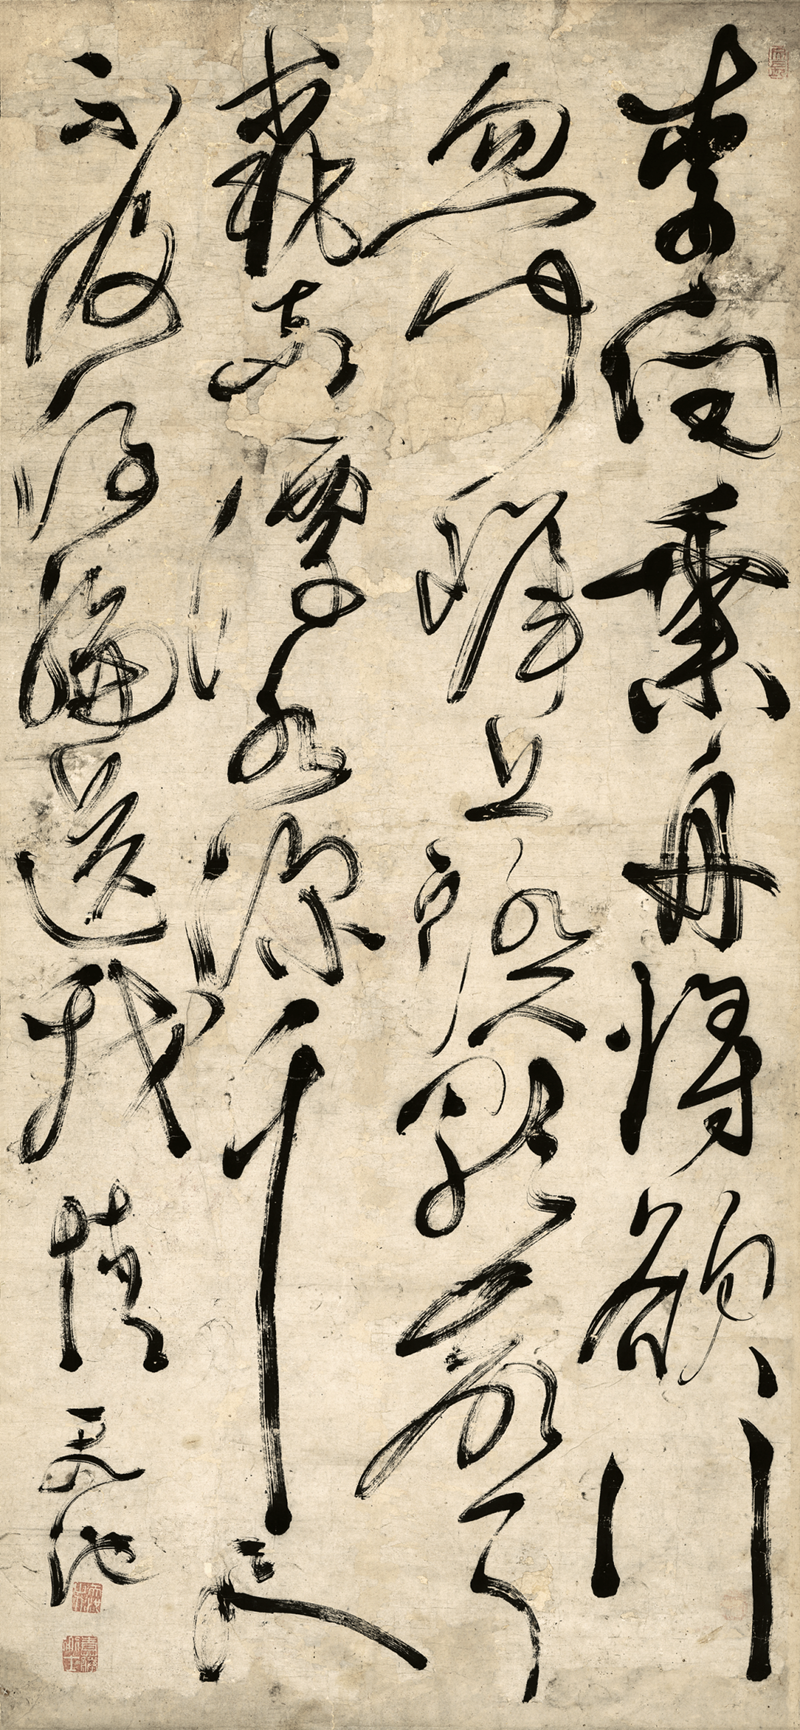 李白乘舟將欲行
忽聞岸上踏歌聲
桃花潭水深千尺
不及汪倫送我情
天池